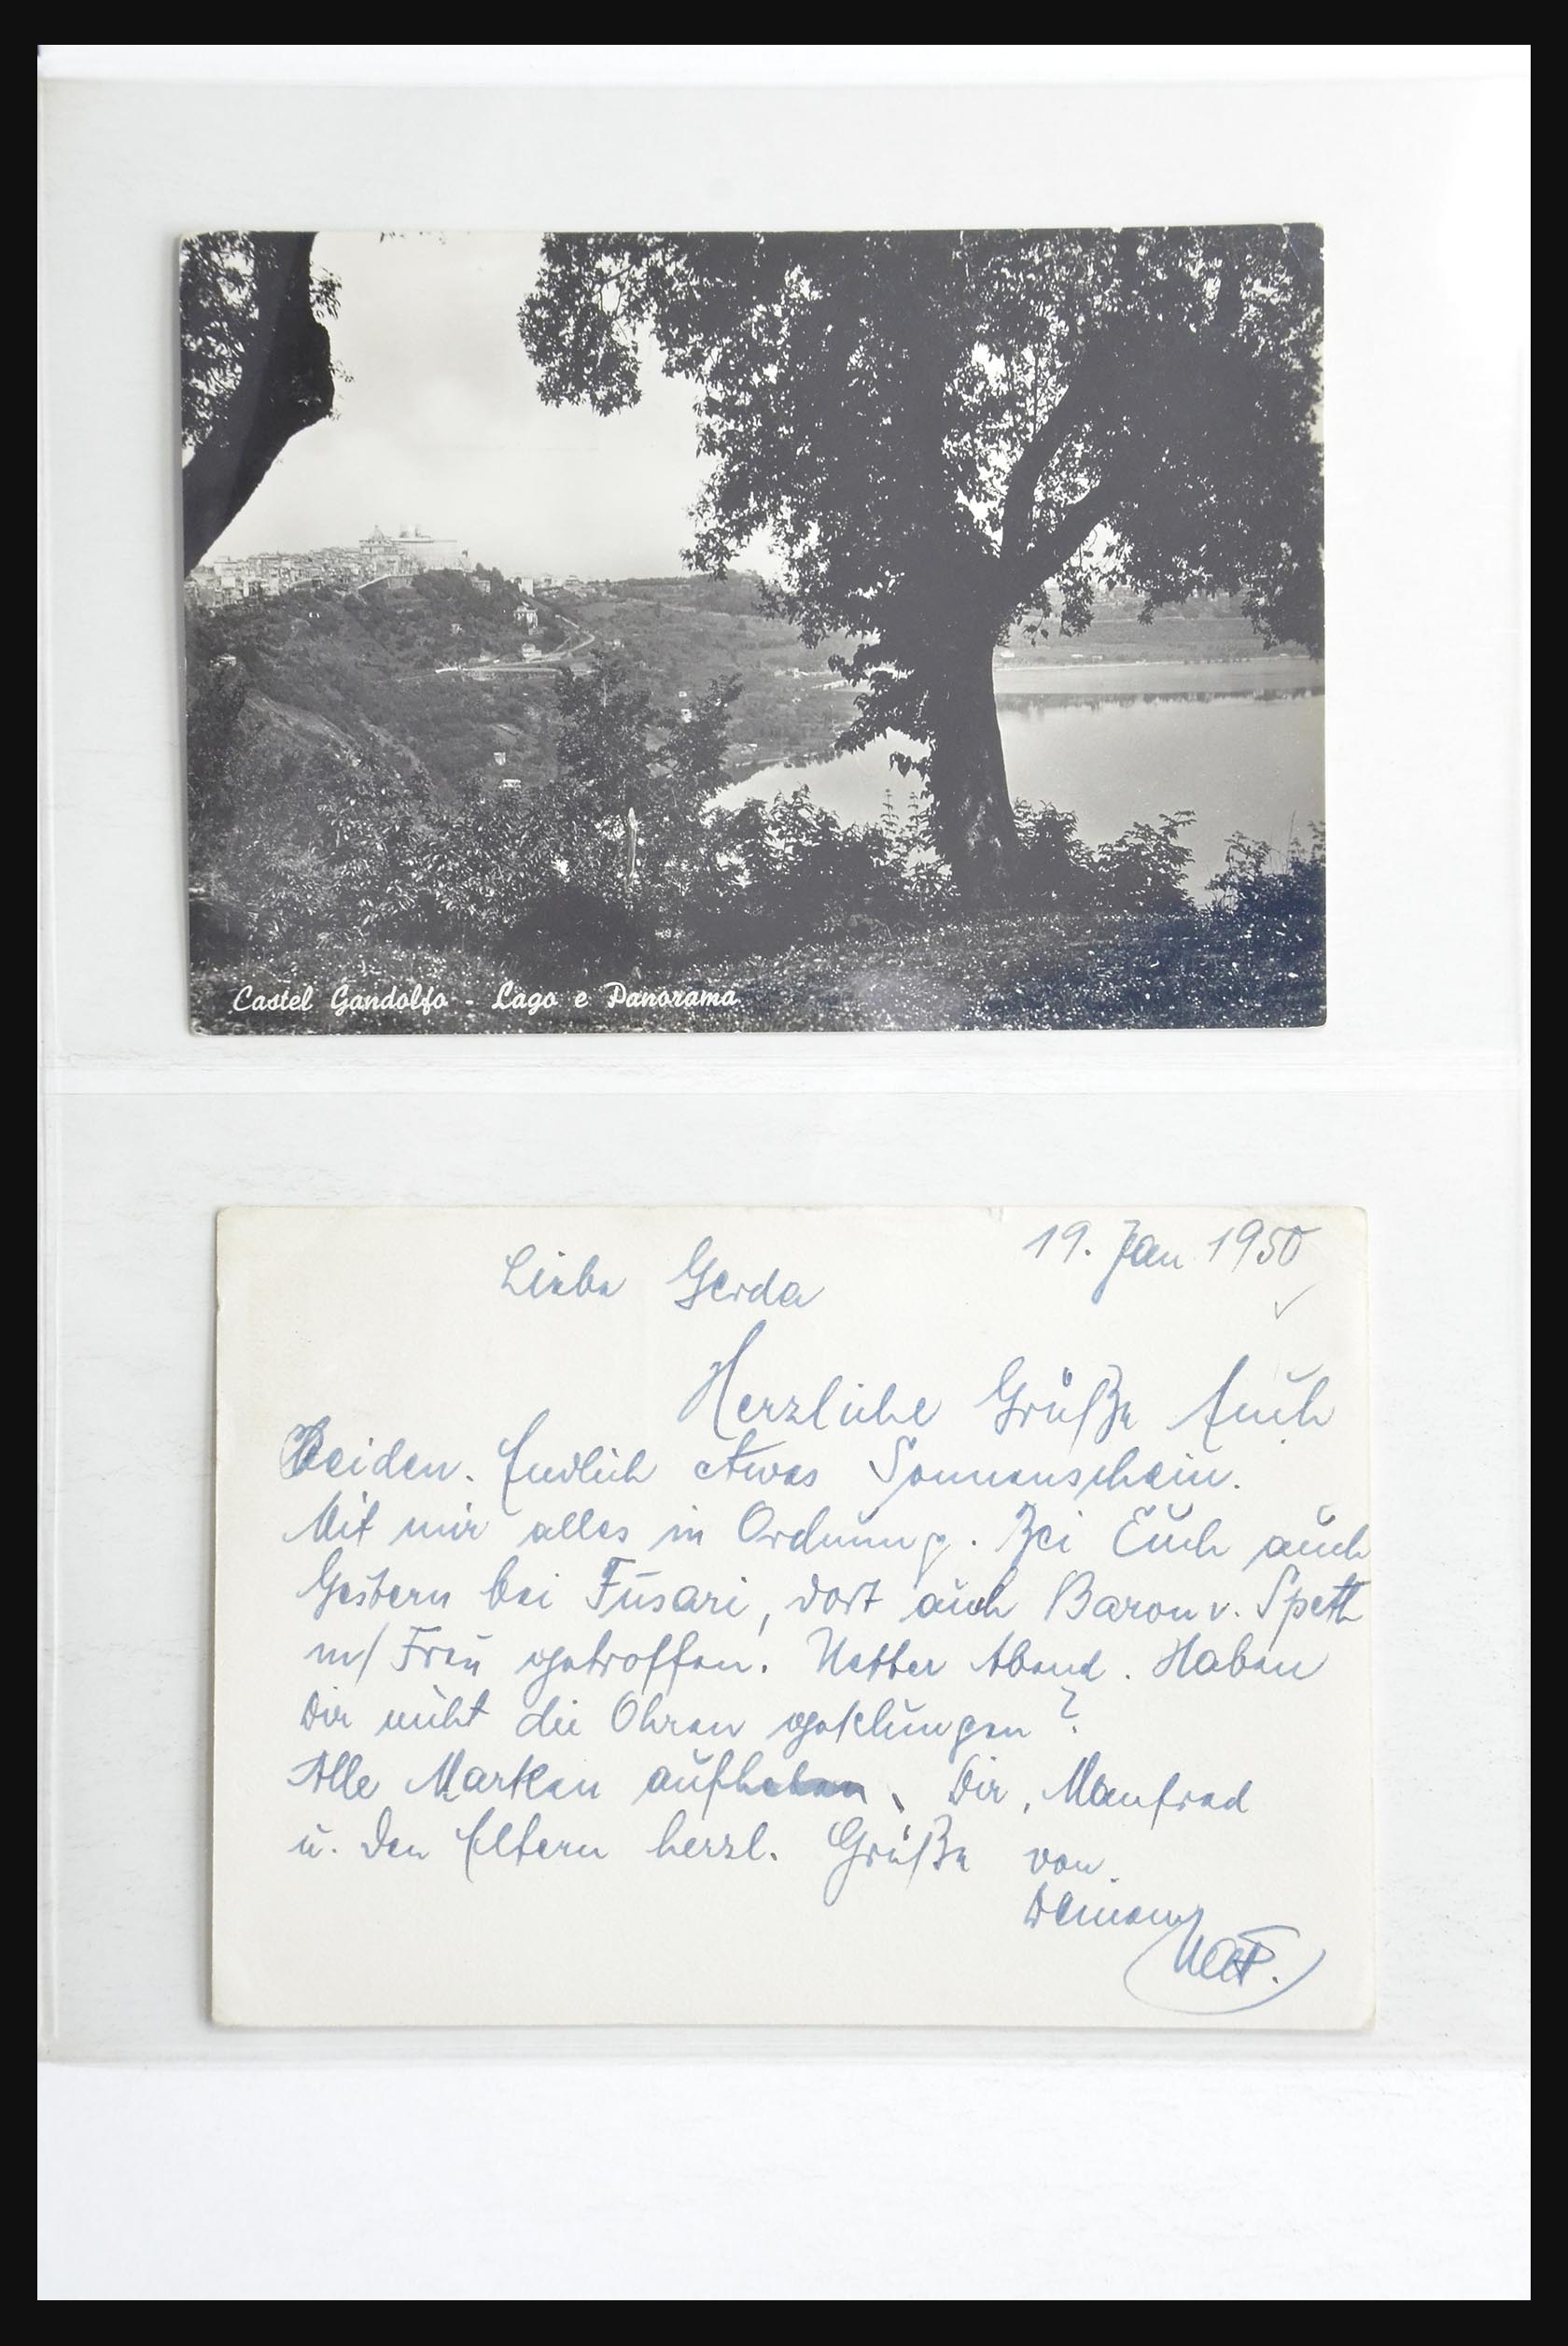 Castel Gandolfo - Lago e Panorama
19. Jan 1950
Liebe Gerda
Herzliche Grüße Euch
Beiden. Endlich etwas Sonnenschein.
Mit mir alles in Ordnung. Bei Euch auch
Gestern bei Fusari, dort auch Baron v. Speth
m/ Frau getroffen. Netter Abend. Haben
Dir nicht die Ohren geklungen?
Alle Marken aufheben. Dir, Manfred
u. den Eltern herzl. Grüße von
Deinem